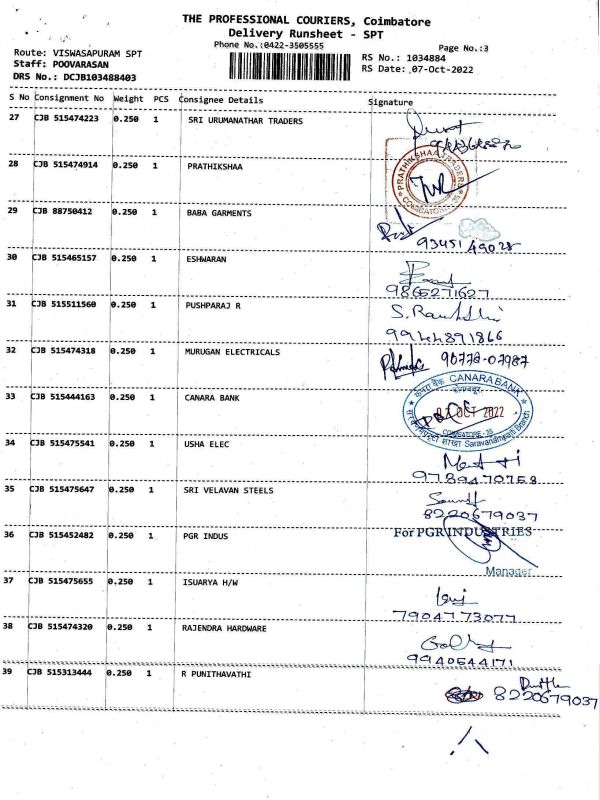 THE PROFESSIONAL COURIERS, Coimbatore
Delivery Runsheet - SPT
Phone No.:0422-3505555
Page No.:3
Route: VISWASAPURAM SPT
RS No.: 1034884
Staff: POOVARASAN
RS Date: 07-Oct-2022
DRS No.: DCJB103488403
S No Consignment No Weight PCS Consignee Details Signature
27 CJB 515474223 0.250 1 SRI URUMANATHAR TRADERS
28 CJB 515474914 0.250 1 PRATHIKSHAA
PRATHIKSHAA TRADERS
COIMBATORE-35
29 CJB 88750412 0.250 1 BABA GARMENTS
93451 49028
30 CJB 515465157 0.250 1 ESHWARAN
9865271627
31 CJB 515511560 0.250 1 PUSHPARAJ R
9944891866
32 CJB 515474318 0.250 1 MURUGAN ELECTRICALS
90778-07987
33 CJB 515444163 0.250 1 CANARA BANK
CANARA BANK
07 OCT 2022
COIMBATORE-35
Saravanampatti Branch
34 CJB 515475541 0.250 1 USHA ELEC
9789470758
35 CJB 515475647 0.250 1 SRI VELAVAN STEELS
8220679037
36 CJB 515452482 0.250 1 PGR INDUS
For PGR INDUSTRIES
Manager
37 CJB 515475655 0.250 1 ISUARYA H/W
79047 73077
38 CJB 515474320 0.250 1 RAJENDRA HARDWARE
9940544171
39 CJB 515313444 0.250 1 R PUNITHAVATHI
8220679037